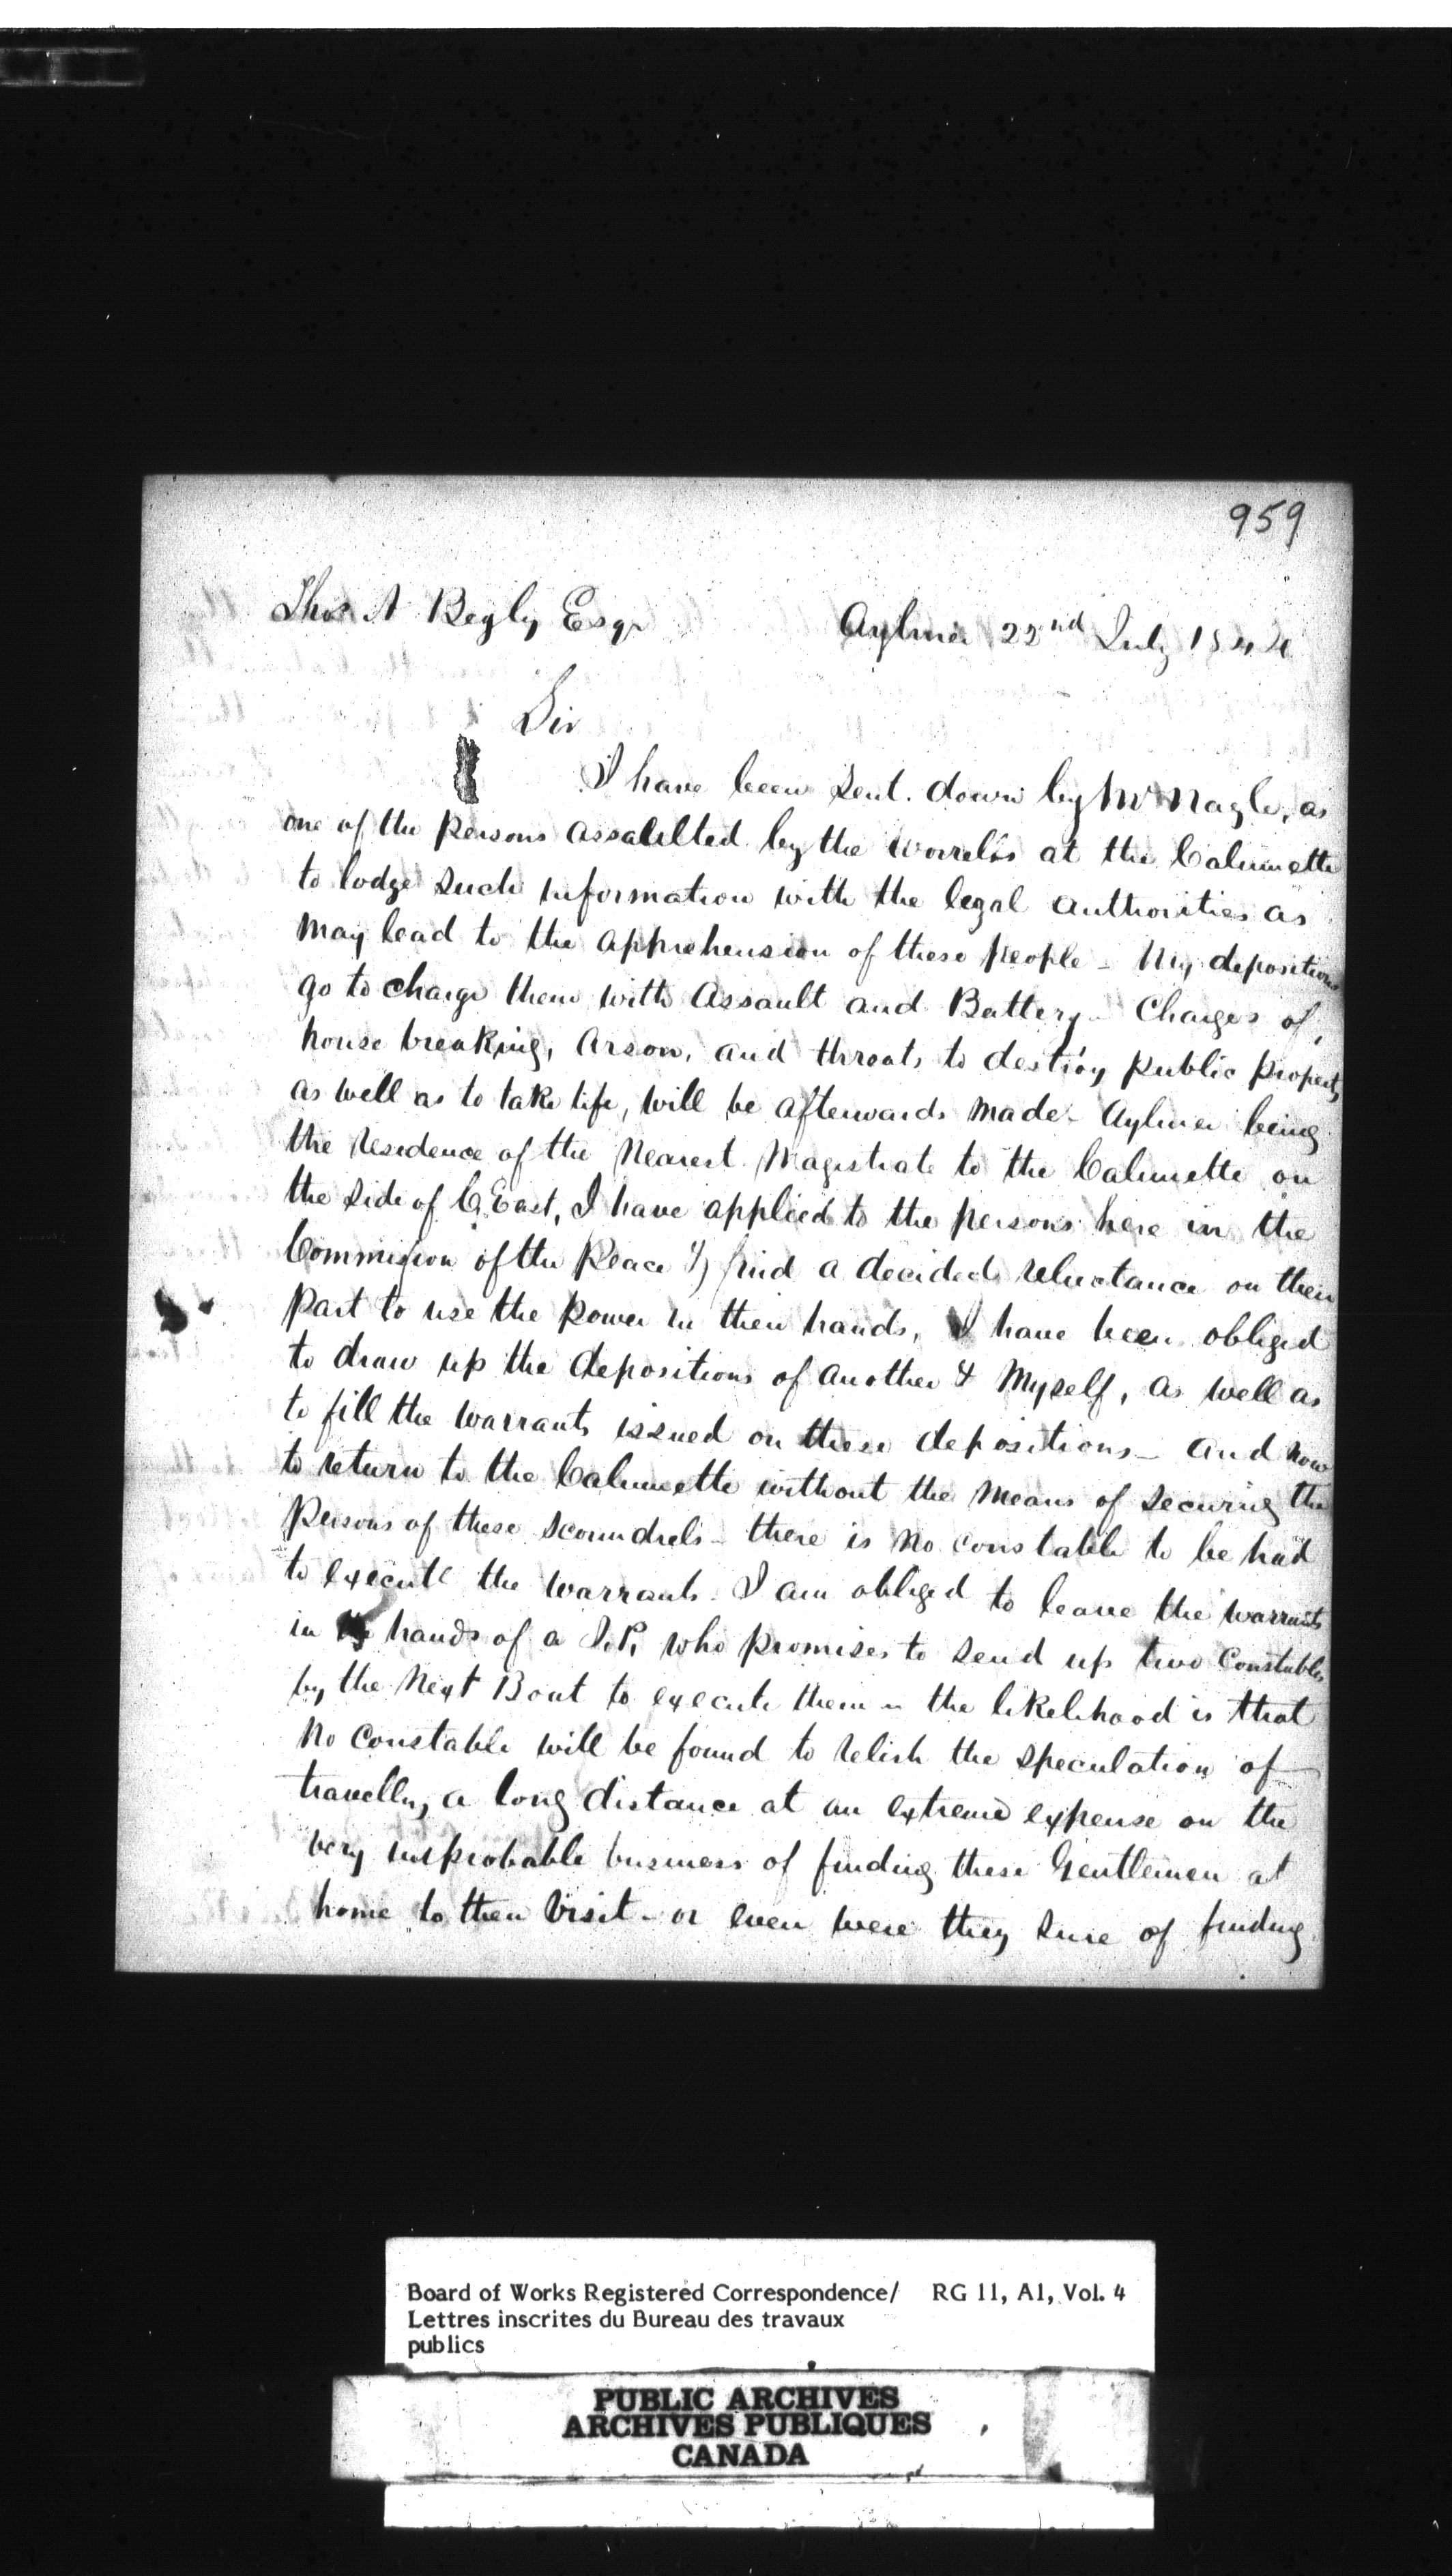 959
Thos A Begly Esqr
Aylmer 22nd July 1844
Sir
I have been sent down by Mr Nagle, as
one of the persons assaulted by the at the Calumette
to lodge such information with the legal authorities as
may lead to the apprehension of these people - My depositions
go to charge them with Assault and Battery - Charges of,
house breaking, Arson, and threats to destroy public property
as well as to take life, will be afterwards made - Aylmer being
the residence of the Nearest Magistrate to the Calumette on
the side of C. East, I have applied to the persons here in the
Commission of the Peace & find a decided reluctance on their
part to use the power in their hands, I have been obliged
to draw up the depositions of another & Myself, as well as
to fill the warrants issued on these depositions - and now
to return to the Calumette without the means of securing the
persons of these scoundrels - there is no constable to be had
to execute the warrants. I am obliged to leave the warrants
in hands of a J.P. who promises to send up two Constables
by the Next Boat to execute them - the likelihood is that
no Constable will be found to relish the speculation of
travelling a long distance at an extreme expense on the
very improbable business of finding these Gentlemen at
home to their visit - or even were they sure of finding
Board of Works Registered Correspondence/ RG 11, A1, Vol. 4
Lettres inscrites du Bureau des travaux
publics
PUBLIC ARCHIVES
ARCHIVES PUBLIQUES
CANADA